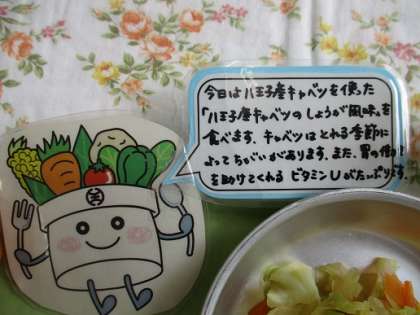 今日は八王子産キャベツを使った
「八王子産キャベツのしょうが風味」を
食べます。キャベツはとれる季節に
よってちがいがあります。また、胃の働き
を助けてくれる ビタミンUがたっぷりです。